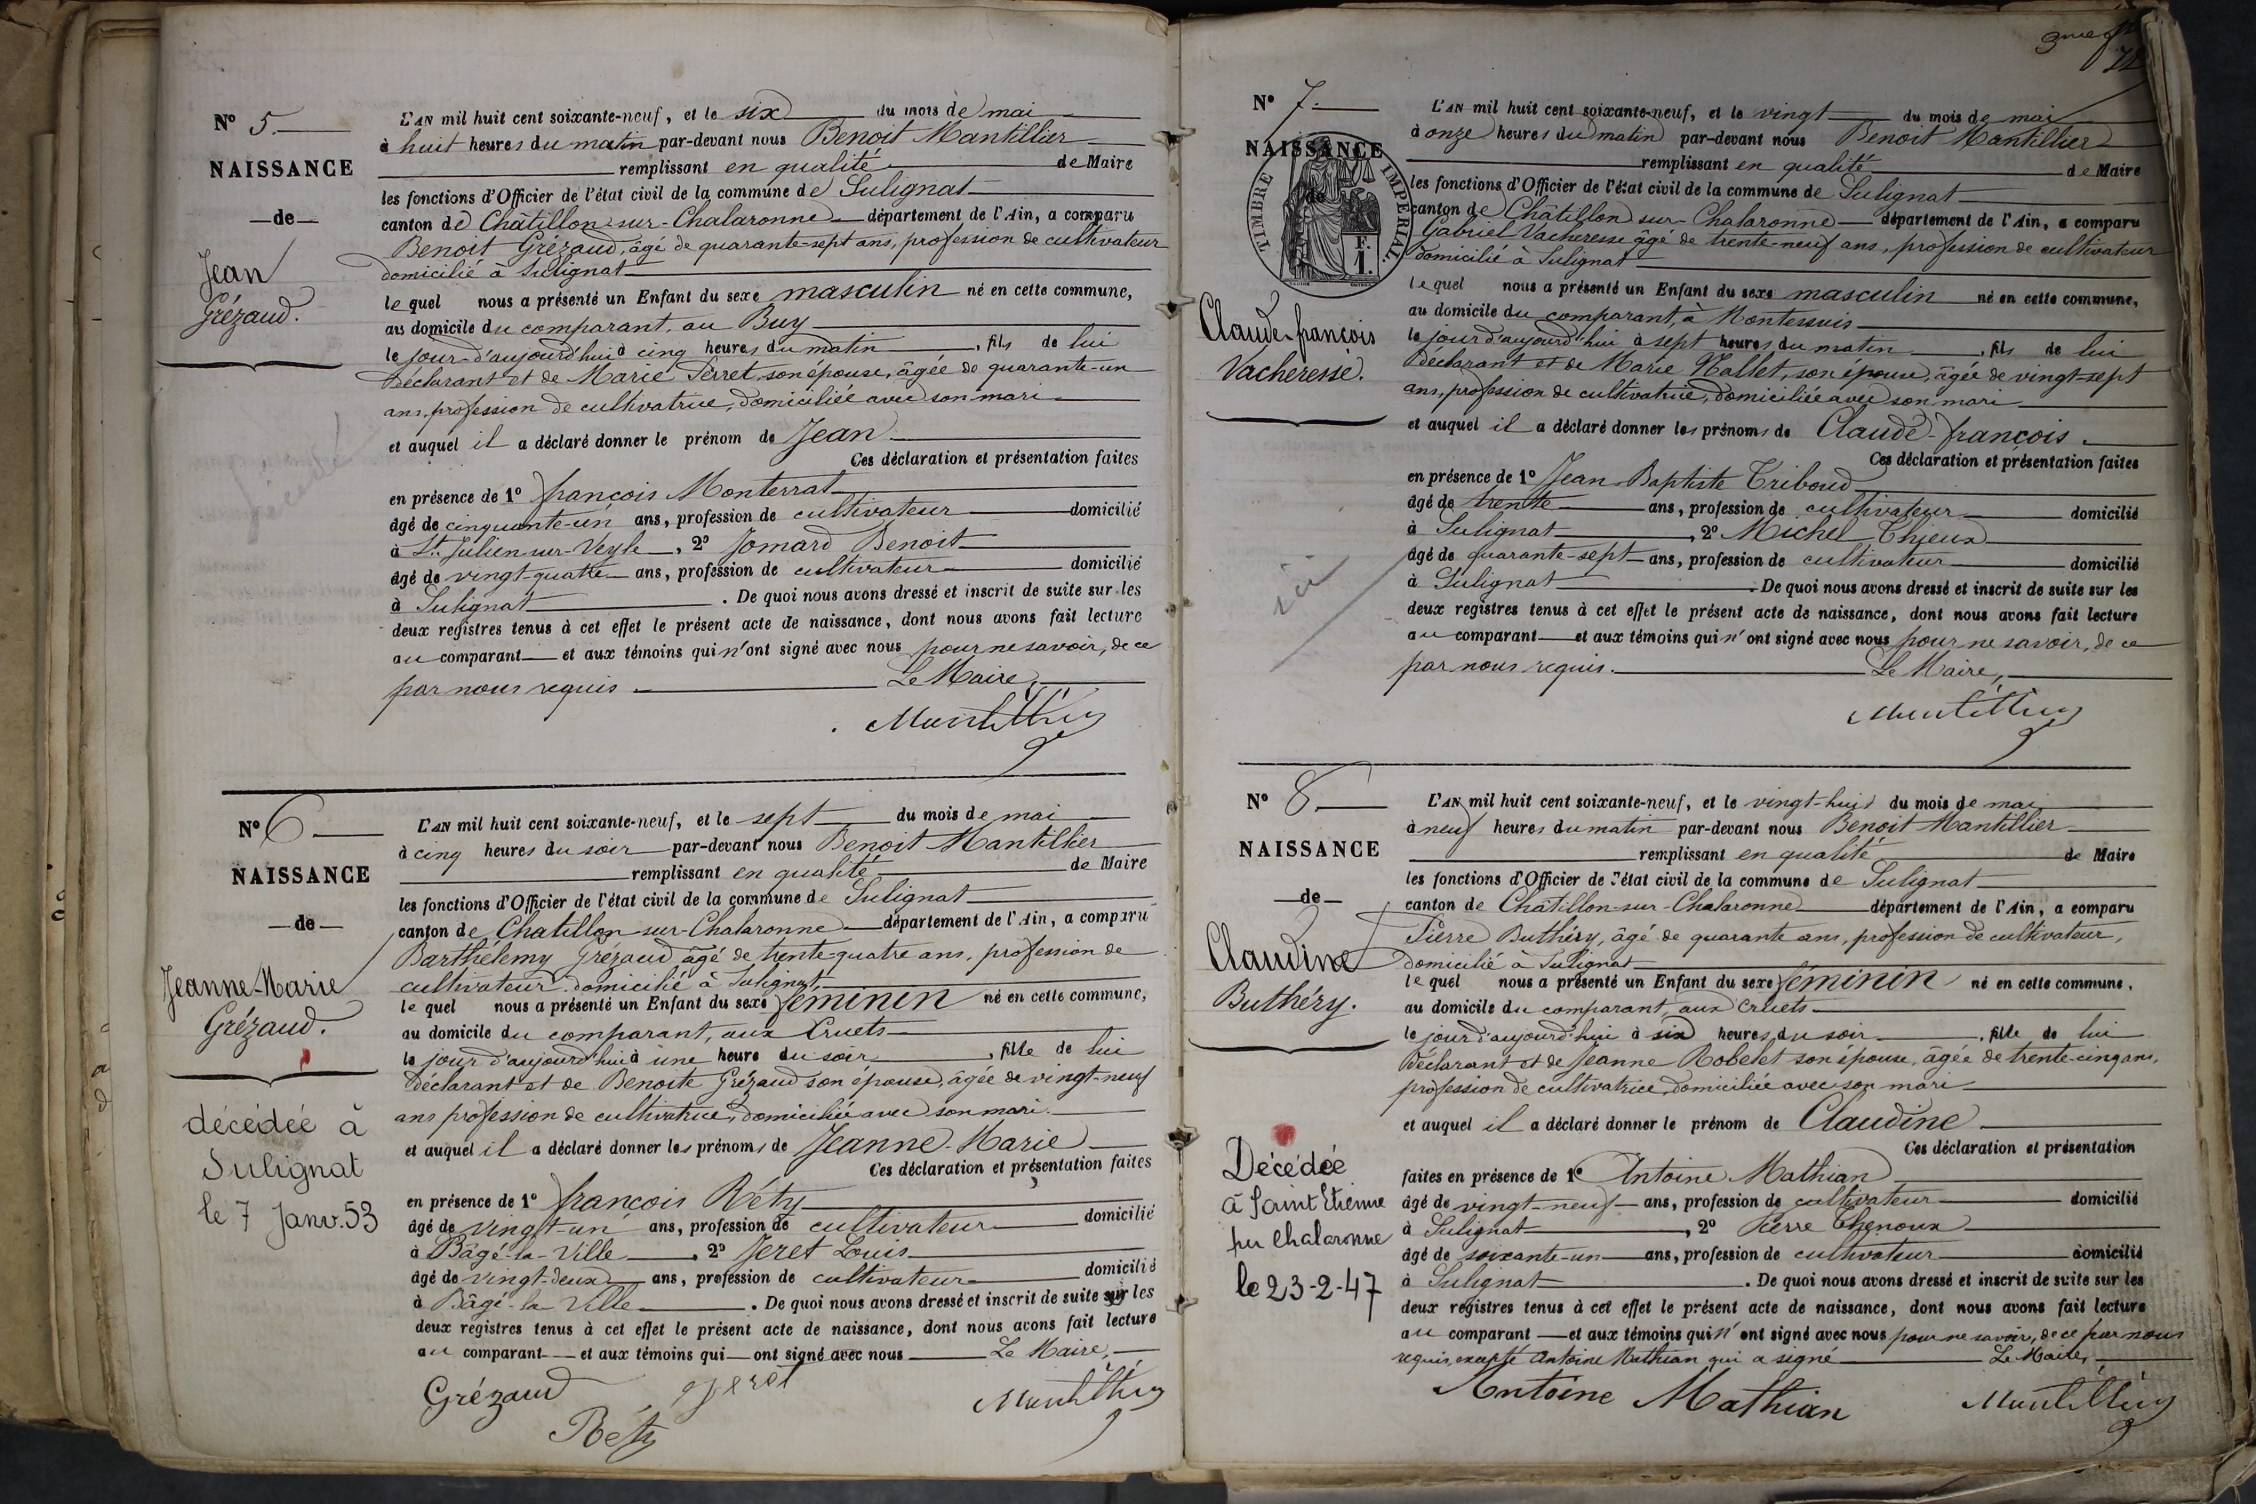 N° 5.
NAISSANCE
—de—
Jean
Grézaud.
L'AN mil huit cent soixante-neuf, et le six du mois de mai
à huit heures du matin par-devant nous Benoit Mantillier
remplissant en qualité de Maire
les fonctions d'Officier de l'état civil de la commune de Sulignat
canton de Châtillon-sur-Chalaronne département de l'Ain, a comparu
Benoit Grézaud, âgé de quarante-sept ans, profession de cultivateur
domicilié à Sulignat
lequel nous a présenté un Enfant du sexe masculin né en cette commune,
au domicile du comparant, au Buy
le jour d'aujourd'hui à cinq heures du matin, fils de lui
déclarant et de Marie Perret, son épouse, âgée de quarante-un
ans, profession de cultivatrice, domiciliée avec son mari
et auquel il a déclaré donner le prénom de Jean
Ces déclaration et présentation faites
en présence de 1° françois Monterrat
âgé de cinquante-un ans, profession de cultivateur domicilié
à St. Julien-sur-Veyle, 2° Jomard Benoit
âgé de vingt-quatre ans, profession de cultivateur domicilié
à Sulignat. De quoi nous avons dressé et inscrit de suite sur les
deux registres tenus à cet effet le présent acte de naissance, dont nous avons fait lecture
au comparant et aux témoins qui n'ont signé avec nous pour ne savoir, de ce
par nous requis Le Maire,
Mantillier
N° 6
NAISSANCE
—de—
Jeanne-Marie
Grézaud.
décédée à
Sulignat
le 7 Janv. 53
L'AN mil huit cent soixante-neuf, et le sept du mois de mai
à cinq heures du soir par-devant nous Benoit Mantillier
remplissant en qualité de Maire
les fonctions d'Officier de l'état civil de la commune de Sulignat
canton de Chatillon-sur-Chalaronne département de l'Ain, a comparu
Barthélemy Grézaud âgé de trente-quatre ans, profession de
cultivateur domicilié à Sulignat,
lequel nous a présenté un Enfant du sexe féminin né en cette commune,
au domicile du comparant, aux Cruets
le jour d'aujourd'hui à une heure du soir, fille de lui
déclarant et de Benoite Grézaud son épouse, âgée de vingt-neuf
ans profession de cultivatrice, domiciliée avec son mari.
et auquel il a déclaré donner les prénoms de Jeanne-Marie
Ces déclaration et présentation faites
en présence de 1° françois Réty
âgé de vingt-un ans, profession de cultivateur domicilié
à Bâgé-la-Ville, 2° Jeret Louis
âgé de vingt-deux ans, profession de cultivateur domicilié
à Bâgé-la-Ville. De quoi nous avons dressé et inscrit de suite sur les
deux registres tenus à cet effet le présent acte de naissance, dont nous avons fait lecture
au comparant et aux témoins qui ont signé avec nous Le Maire,
Grézaud Jeret Mantillier
Réty
3me
N° 7.
NAISSANCE
de
TIMBRE IMPÉRIAL.
F.
1.
Claude-françois
Vacheresse.
L'AN mil huit cent soixante-neuf, et le vingt du mois de mai
à onze heures du matin par-devant nous Benoit Mantillier
remplissant en qualité de Maire
les fonctions d'Officier de l'état civil de la commune de Sulignat
canton de Châtillon sur-Chalaronne département de l'Ain, a comparu
Gabriel Vacheresse âgé de trente-neuf ans, profession de cultivateur
domicilié à Sulignat
lequel nous a présenté un Enfant du sexe masculin né en cette commune,
au domicile du comparant, à Montessuis
le jour d'aujourd'hui à sept heures du matin, fils de lui
déclarant et de Marie Mallet, son épouse, âgée de vingt-sept
ans, profession de cultivatrice, domiciliée avec son mari
et auquel il a déclaré donner les prénoms de Claude-françois.
Ces déclaration et présentation faites
en présence de 1° Jean-Baptiste Triboud
âgé de trente ans, profession de cultivateur domicilié
à Sulignat, 2° Michel Thieux
âgé de quarante-sept ans, profession de cultivateur domicilié
à Sulignat. De quoi nous avons dressé et inscrit de suite sur les
deux registres tenus à cet effet le présent acte de naissance, dont nous avons fait lecture
au comparant et aux témoins qui n'ont signé avec nous pour ne savoir, de ce
par nous requis. Le Maire,
Mantillier
N° 8.
NAISSANCE
—de—
Claudine
Buthéry.
Décédée
à Saint Etienne
sur Chalaronne
le 23-2-47
L'AN mil huit cent soixante-neuf, et le vingt-huit du mois de mai
à neuf heures du matin par-devant nous Benoit Mantillier
remplissant en qualité de Maire
les fonctions d'Officier de l'état civil de la commune de Sulignat
canton de Châtillon-sur-Chalaronne département de l'Ain, a comparu
Pierre Buthéry, âgé de quarante ans, profession de cultivateur,
domicilié à Sulignat
lequel nous a présenté un Enfant du sexe féminin né en cette commune,
au domicile du comparant, aux Cruets
le jour d'aujourd'hui à six heures du soir, fille de lui
déclarant et de Jeanne Robelet son épouse, âgée de trente-cinq ans,
profession de cultivatrice, domiciliée avec son mari
et auquel il a déclaré donner le prénom de Claudine
Ces déclaration et présentation
faites en présence de 1° Antoine Mathian
âgé de vingt-neuf ans, profession de cultivateur domicilié
à Sulignat, 2° Pierre Chenoux
âgé de soixante-un ans, profession de cultivateur domicilié
à Sulignat. De quoi nous avons dressé et inscrit de suite sur les
deux registres tenus à cet effet le présent acte de naissance, dont nous avons fait lecture
au comparant et aux témoins qui n'ont signé avec nous pour ne savoir, de ce par nous
requis, excepté Antoine Mathian qui a signé Le Maire,
Antoine Mathian Mantillier